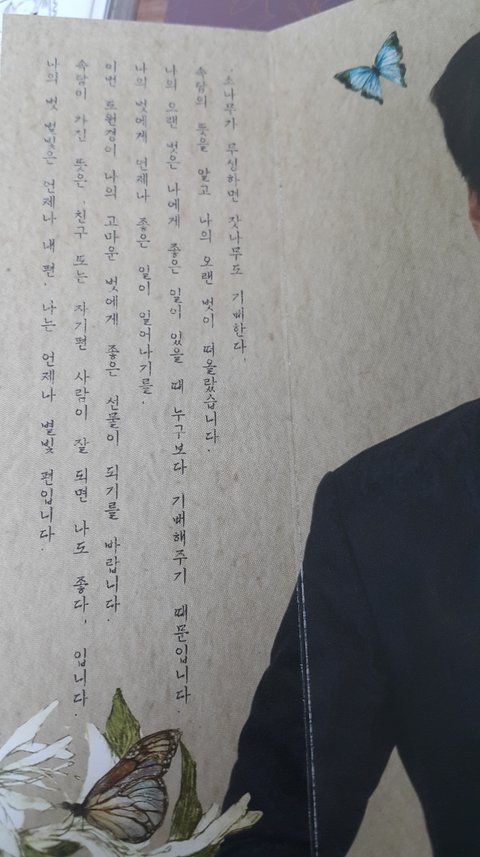 '소나무가 무성하면 잣나무도 기뻐한다.'
속담의 뜻을 알고 나의 오랜 벗이 떠올랐습니다.
나의 오랜 벗은 나에게 좋은 일이 있을 때 누구보다 기뻐해주기 때문입니다.
나의 벗에게 언제나 좋은 일이 일어나기를.
이번 나의 고마운 벗에게 좋은 선물이 되기를 바랍니다.
속담이 가진 뜻은 '친구 또는 자기편 사람이 잘 되면 나도 좋다.' 입니다.
나의 벗 별빛은 언제나 내 편. 나는 언제나 별빛 편입니다.